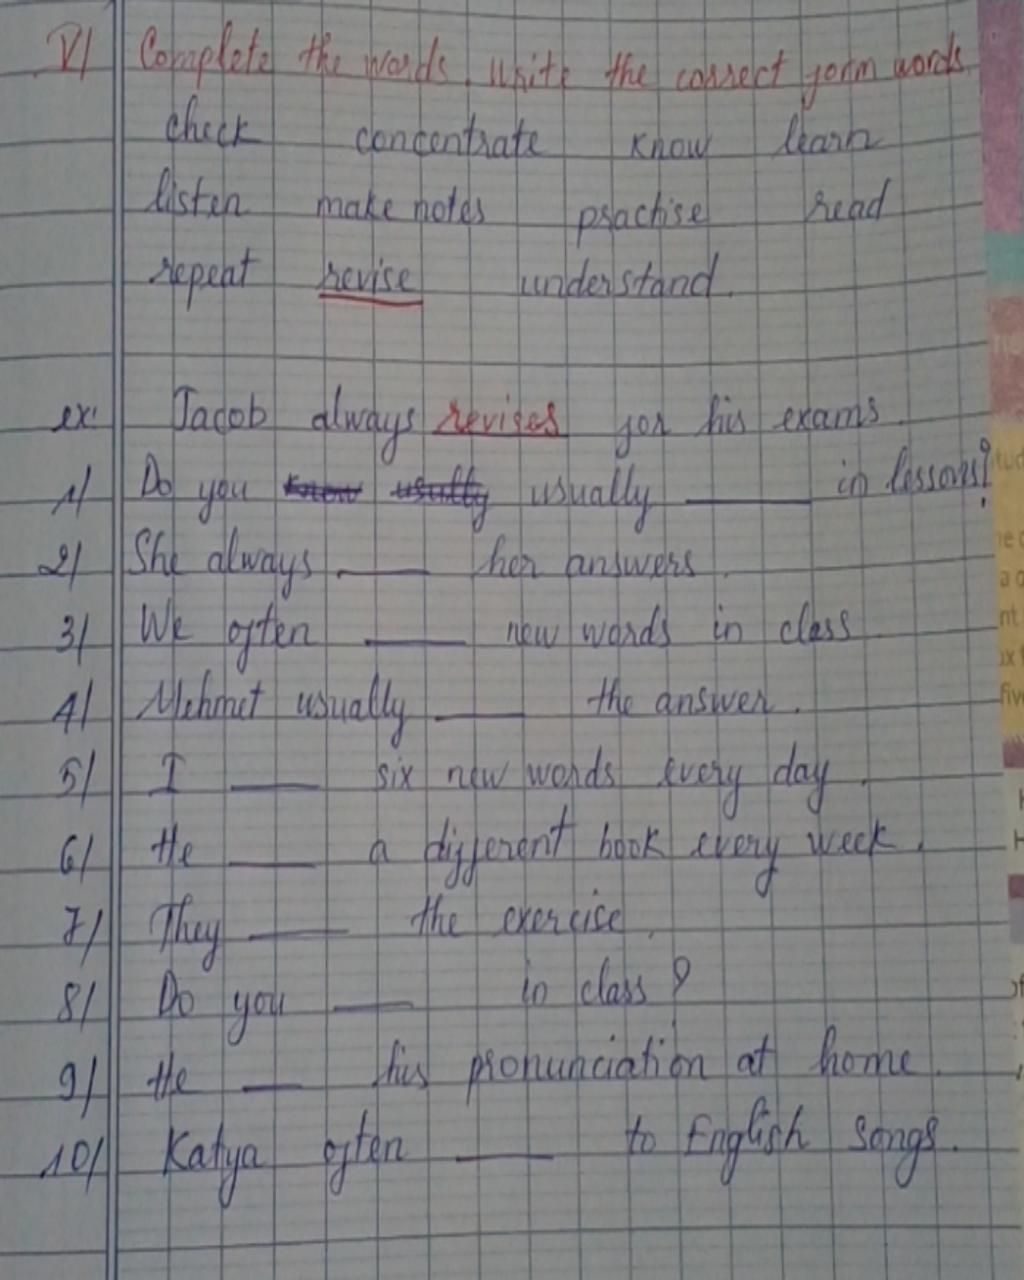 V/ Complete the words. Write the correct form words.
check concentrate know learn
listen make notes practise read
repeat revise understand.
ex: Jacob always revises for his exams
1/ Do you know usually usually ______ in lessons?
2/ She always ______ her answers.
3/ We often ______ new words in class
4/ Mehmet usually ______ the answer.
5/ I ______ six new words every day.
6/ He ______ a different book every week.
7/ They ______ the exercise.
8/ Do you ______ in class?
9/ He ______ his pronunciation at home.
10/ Katya often ______ to English songs.